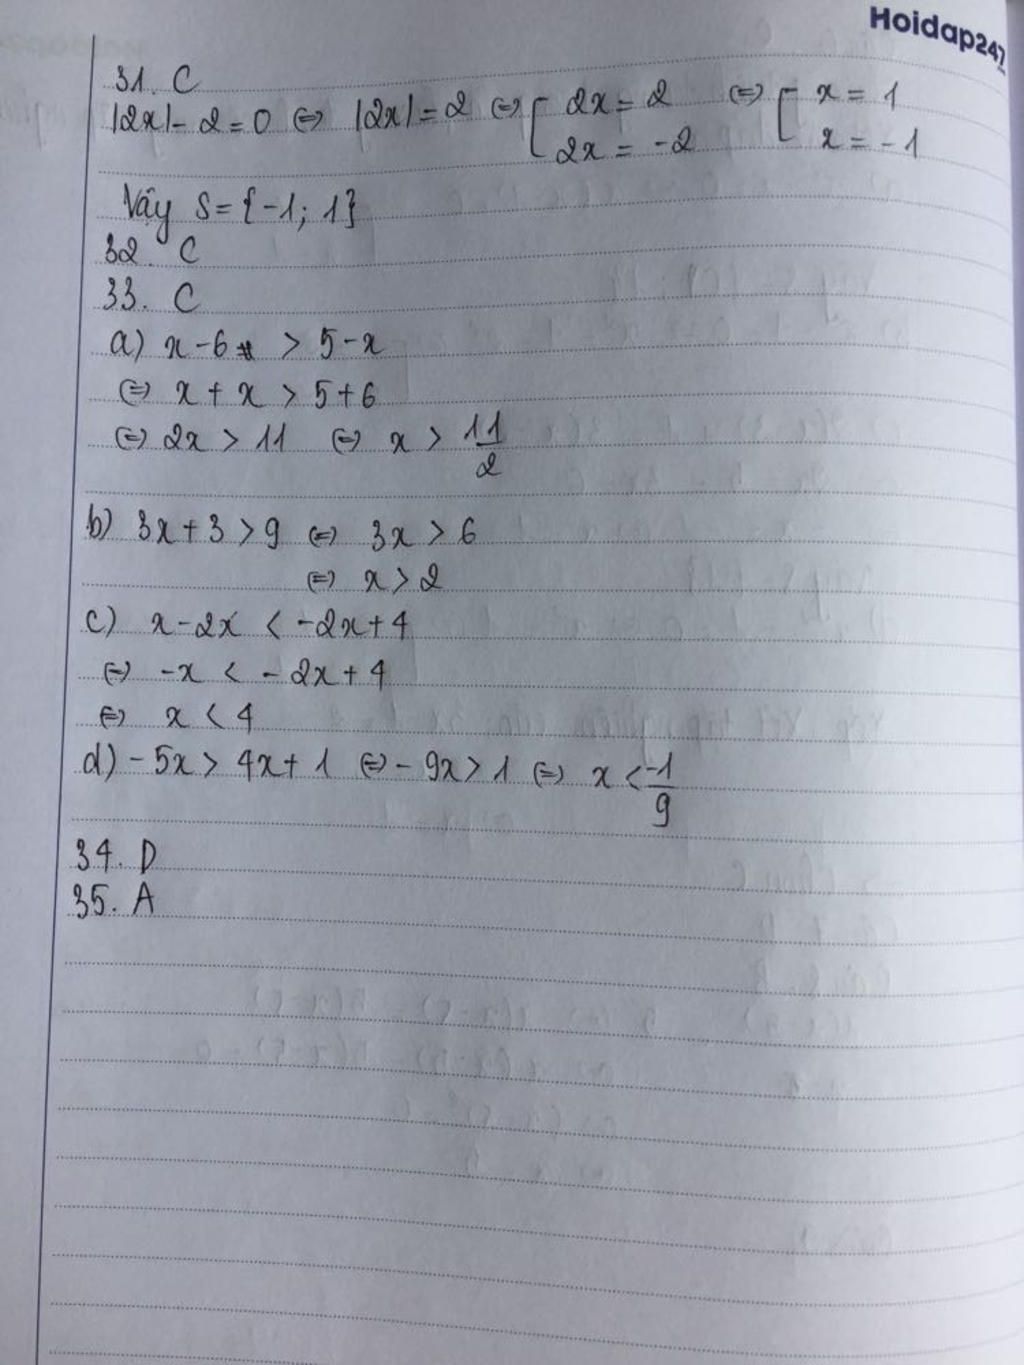 Hoidap247
31. C
|2x| - 2 = 0 ⇔ |2x| = 2 ⇔ [ 2x = 2 ⇔ [ x = 1
2x = -2 x = -1
Vậy S = {-1; 1}
32. C
33. C
a) x - 6 > 5 - x
⇔ x + x > 5 + 6
⇔ 2x > 11 ⇔ x > 11/2
b) 3x + 3 > 9 ⇔ 3x > 6
⇔ x > 2
c) x - 2x < -2x + 4
⇔ -x < -2x + 4
⇔ x < 4
d) -5x > 4x + 1 ⇔ -9x > 1 ⇔ x < -1/9
34. D
35. A